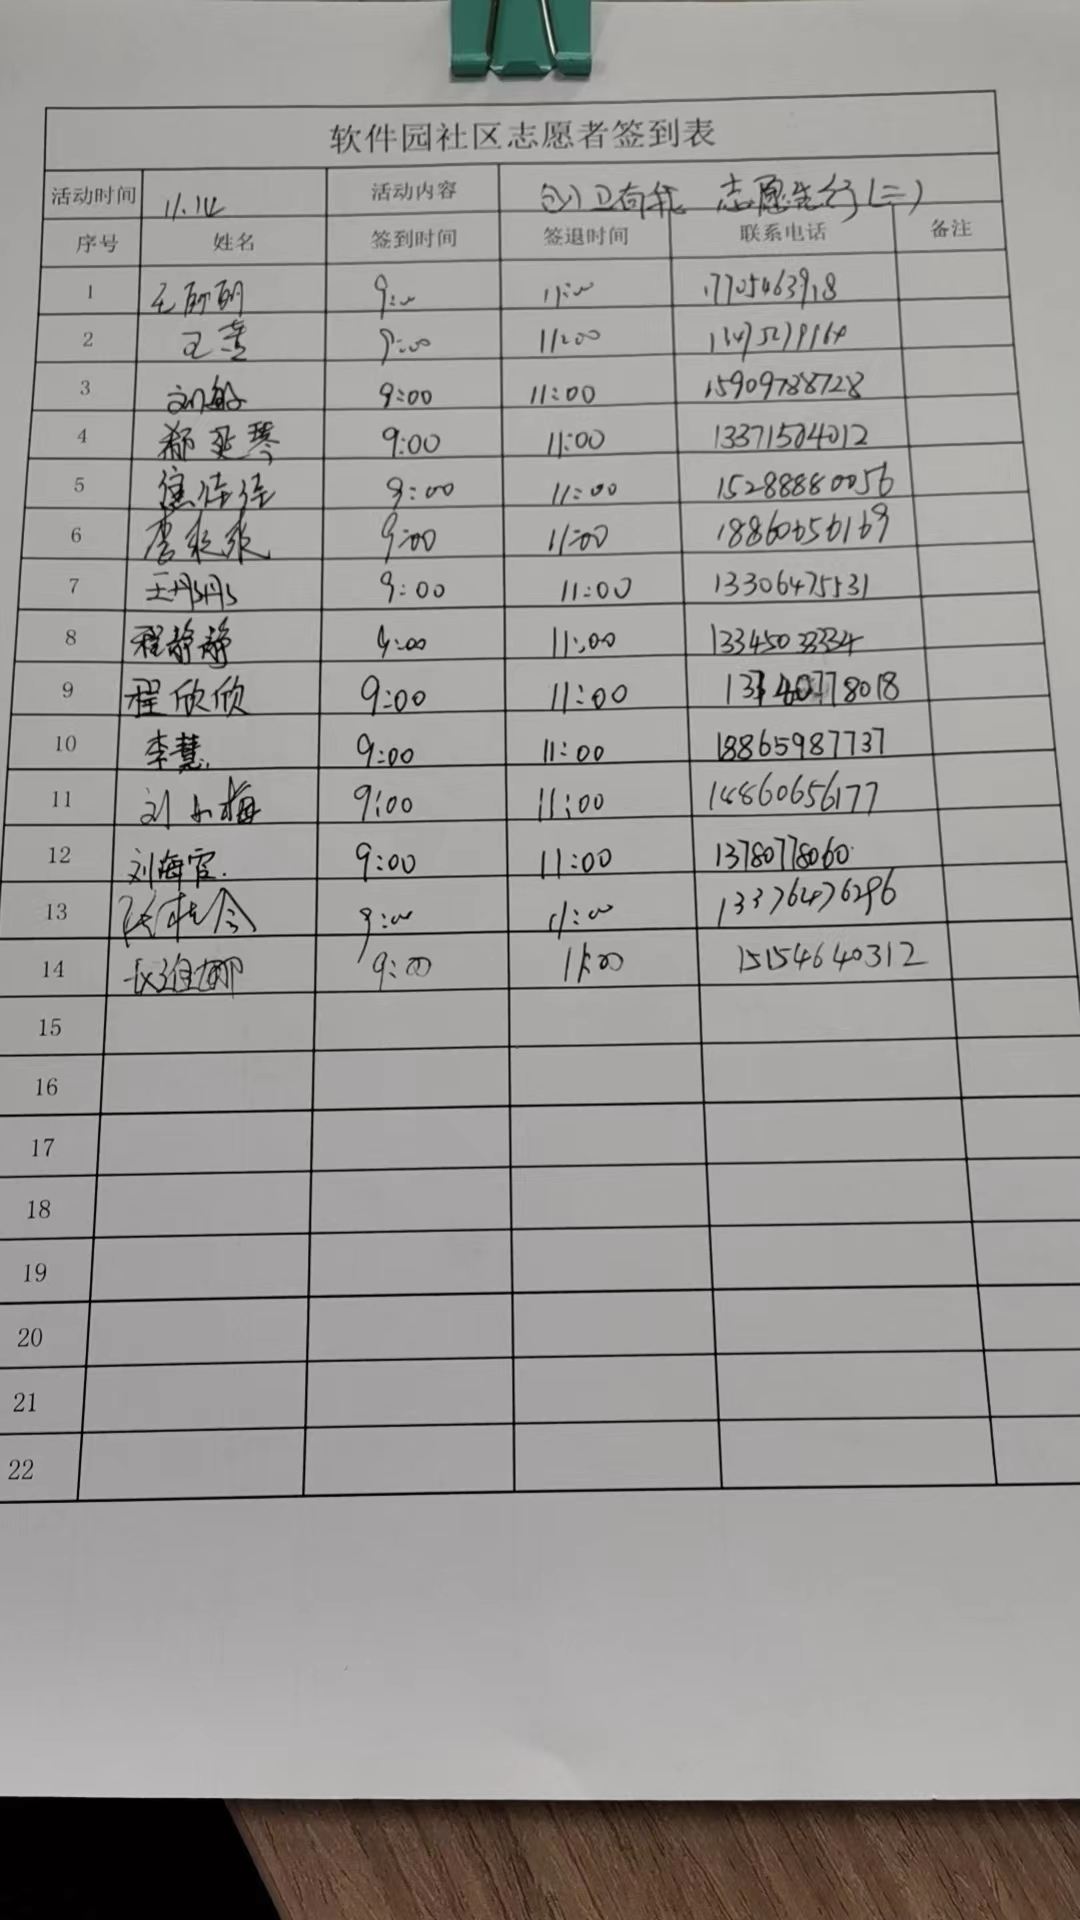 软件园社区志愿者签到表
活动时间 11.14 活动内容 创卫有我 志愿先行(二)
序号 姓名 签到时间 签退时间 联系电话 备注
1 9:00 11:00
2 9:00 11:00
3 刘敏 9:00 11:00 15909788728
4 郝亚琴 9:00 11:00 13371504012
5 焦佳佳 9:00 11:00 15288880056
6 9:00 11:00 18860656169
7 王彤彤 9:00 11:00 13306475531
8 程静静 9:00 11:00 13345033334
9 程欣欣 9:00 11:00
10 李慧 9:00 11:00 18865987737
11 刘小梅 9:00 11:00 18860656177
12 刘海官 9:00 11:00 13780778060
13 9:00 11:00 13376476296
14 9:00 11:00 15154640312
15
16
17
18
19
20
21
22